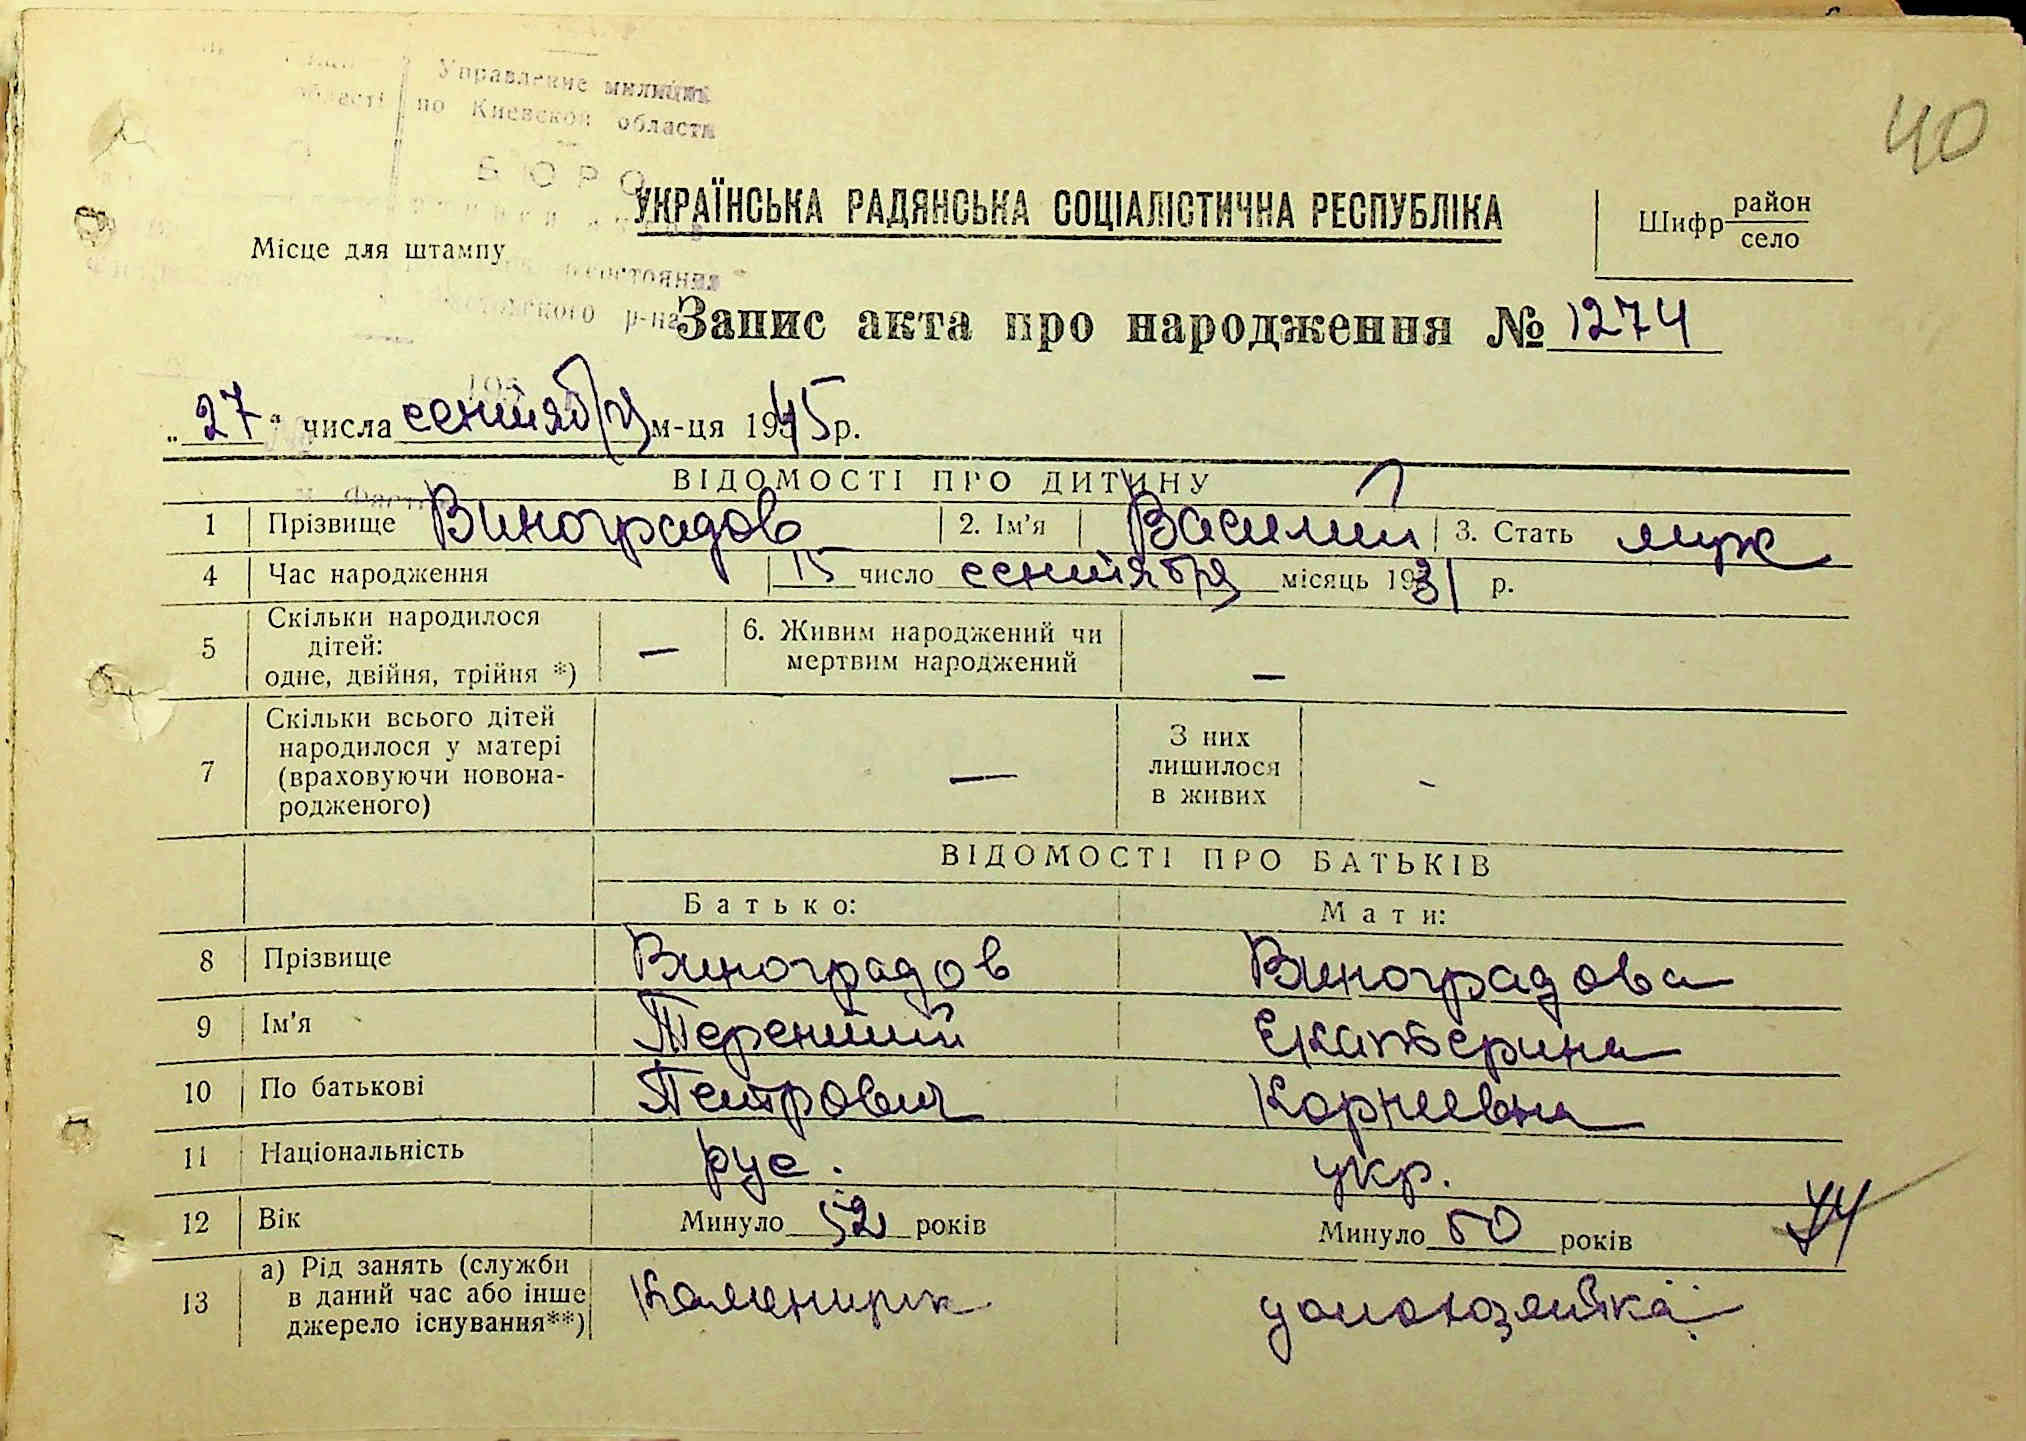 Управление милиции
області по Киевской области
БЮРО
40
УКРАЇНСЬКА РАДЯНСЬКА СОЦІАЛІСТИЧНА РЕСПУБЛІКА
Шифр район
село
Місце для штампу
состояния
р-на
Запис акта про народження № 1274
„27" числа сентября м-ця 1945 р.
ВІДОМОСТІ ПРО ДИТИНУ
1 Прізвище Виноградов 2. Ім'я Василий 3. Стать муж
4 Час народження 15 число сентября місяць 1931 р.
5 Скільки народилося дітей: одне, двійня, трійня *) — 6. Живим народжений чи мертвим народжений —
7 Скільки всього дітей народилося у матері (враховуючи новонародженого) — З них лишилося в живих -
ВІДОМОСТІ ПРО БАТЬКІВ
Батько: Мати:
8 Прізвище Виноградов Виноградова
9 Ім'я Терентий Екатерина
10 По батькові Петрович Корнеевна
11 Національність рус. укр.
12 Вік Минуло 52 років Минуло 50 років
13 а) Рід занять (служби в даний час або інше джерело існування**) домохозяйка